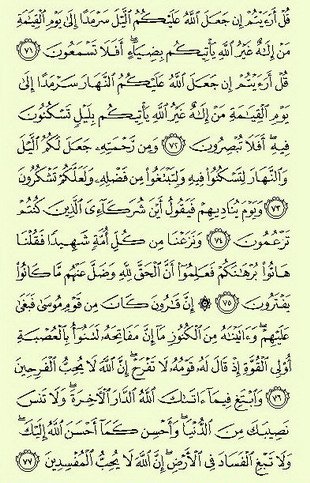 قُلْ أَرَءَيْتُمْ إِن جَعَلَ ٱللَّهُ عَلَيْكُمُ ٱلَّيْلَ سَرْمَدًا إِلَىٰ يَوْمِ ٱلْقِيَٰمَةِ
مَنْ إِلَٰهٌ غَيْرُ ٱللَّهِ يَأْتِيكُم بِضِيَآءٍ ۖ أَفَلَا تَسْمَعُونَ ﴿٧١﴾
قُلْ أَرَءَيْتُمْ إِن جَعَلَ ٱللَّهُ عَلَيْكُمُ ٱلنَّهَارَ سَرْمَدًا إِلَىٰ
يَوْمِ ٱلْقِيَٰمَةِ مَنْ إِلَٰهٌ غَيْرُ ٱللَّهِ يَأْتِيكُم بِلَيْلٍ تَسْكُنُونَ
فِيهِ ۖ أَفَلَا تُبْصِرُونَ ﴿٧٢﴾ وَمِن رَّحْمَتِهِۦ جَعَلَ لَكُمُ ٱلَّيْلَ
وَٱلنَّهَارَ لِتَسْكُنُوا۟ فِيهِ وَلِتَبْتَغُوا۟ مِن فَضْلِهِۦ وَلَعَلَّكُمْ تَشْكُرُونَ
﴿٧٣﴾ وَيَوْمَ يُنَادِيهِمْ فَيَقُولُ أَيْنَ شُرَكَآءِىَ ٱلَّذِينَ كُنتُمْ
تَزْعُمُونَ ﴿٧٤﴾ وَنَزَعْنَا مِن كُلِّ أُمَّةٍ شَهِيدًا فَقُلْنَا
هَاتُوا۟ بُرْهَٰنَكُمْ فَعَلِمُوٓا۟ أَنَّ ٱلْحَقَّ لِلَّهِ وَضَلَّ عَنْهُم مَّا كَانُوا۟
يَفْتَرُونَ ﴿٧٥﴾ ۞ إِنَّ قَٰرُونَ كَانَ مِن قَوْمِ مُوسَىٰ فَبَغَىٰ
عَلَيْهِمْ ۖ وَءَاتَيْنَٰهُ مِنَ ٱلْكُنُوزِ مَآ إِنَّ مَفَاتِحَهُۥ لَتَنُوٓأُ بِٱلْعُصْبَةِ
أُو۟لِى ٱلْقُوَّةِ إِذْ قَالَ لَهُۥ قَوْمُهُۥ لَا تَفْرَحْ ۖ إِنَّ ٱللَّهَ لَا يُحِبُّ ٱلْفَرِحِينَ
﴿٧٦﴾ وَٱبْتَغِ فِيمَآ ءَاتَىٰكَ ٱللَّهُ ٱلدَّارَ ٱلْءَاخِرَةَ ۖ وَلَا تَنسَ
نَصِيبَكَ مِنَ ٱلدُّنْيَا ۖ وَأَحْسِن كَمَآ أَحْسَنَ ٱللَّهُ إِلَيْكَ ۖ
وَلَا تَبْغِ ٱلْفَسَادَ فِى ٱلْأَرْضِ ۖ إِنَّ ٱللَّهَ لَا يُحِبُّ ٱلْمُفْسِدِينَ ﴿٧٧﴾